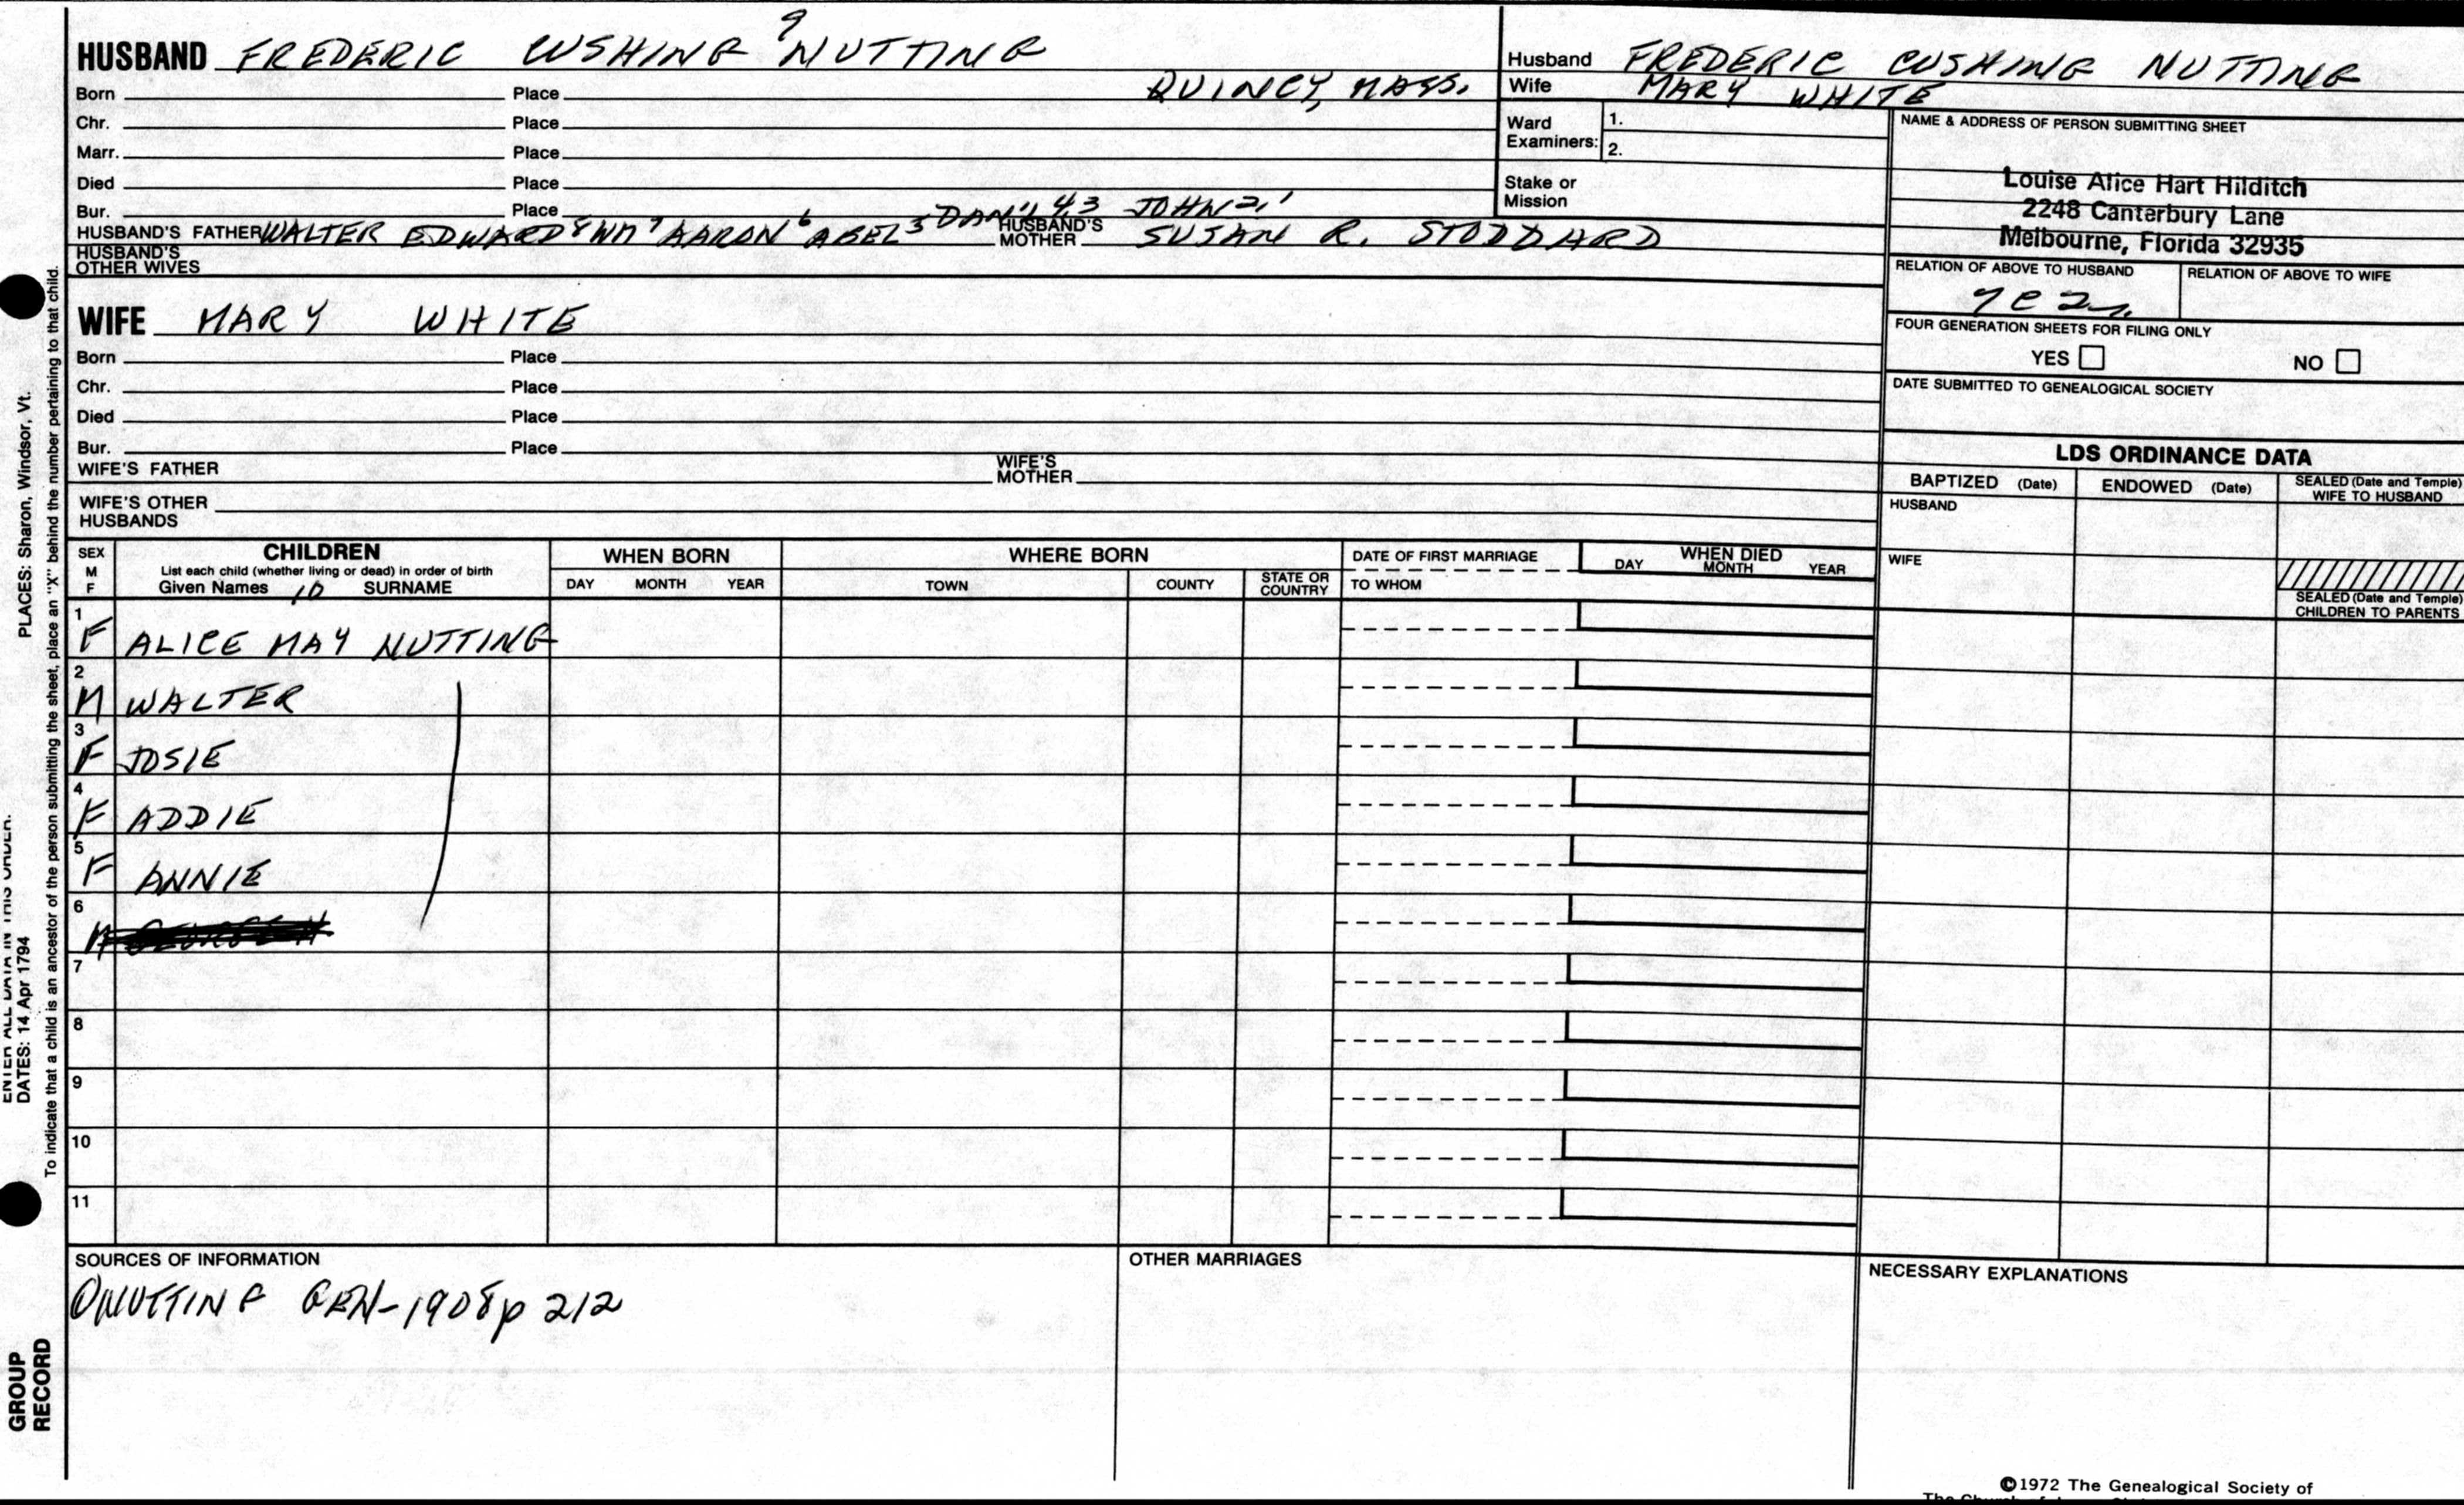 HUSBAND FREDERIC CUSHING 9 NUTTING
Born Place QUINCY, MASS.
Chr. Place
Marr. Place
Died Place
Bur. Place
HUSBAND'S FATHER WALTER EDWARD 8 WM 7 AARON 6 ABEL 5 DAN'L 4,3 JOHN 2,1 HUSBAND'S MOTHER SUSAN R. STODDARD
HUSBAND'S OTHER WIVES
WIFE MARY WHITE
Born Place
Chr. Place
Died Place
Bur. Place
WIFE'S FATHER WIFE'S MOTHER
WIFE'S OTHER HUSBANDS
Husband FREDERIC CUSHING NUTTING
Wife MARY WHITE
Ward Examiners: 1.
2.
Stake or Mission
NAME & ADDRESS OF PERSON SUBMITTING SHEET
Louise Alice Hart Hilditch
2248 Canterbury Lane
Melbourne, Florida 32935
RELATION OF ABOVE TO HUSBAND RELATION OF ABOVE TO WIFE
FOUR GENERATION SHEETS FOR FILING ONLY
YES NO
DATE SUBMITTED TO GENEALOGICAL SOCIETY
LDS ORDINANCE DATA
BAPTIZED (Date) ENDOWED (Date) SEALED (Date and Temple) WIFE TO HUSBAND
HUSBAND
WIFE
SEALED (Date and Temple)
CHILDREN TO PARENTS
SEX M F
CHILDREN
List each child (whether living or dead) in order of birth
Given Names 10 SURNAME
WHEN BORN
DAY MONTH YEAR
WHERE BORN
TOWN COUNTY STATE OR COUNTRY
DATE OF FIRST MARRIAGE
TO WHOM
WHEN DIED
DAY MONTH YEAR
1 F ALICE MAY NUTTING
2 M WALTER
3 F JOSIE
4 F ADDIE
5 F ANNIE
6 M
7
8
9
10
11
SOURCES OF INFORMATION
NUTTING GEN-1908 p 212
OTHER MARRIAGES
NECESSARY EXPLANATIONS
©1972 The Genealogical Society of
PLACES: Sharon, Windsor, Vt.
ENTER ALL DATA IN THIS ORDER.
DATES: 14 Apr 1794
To indicate that a child is an ancestor of the person submitting the sheet, place an "X" behind the number pertaining to that child.
GROUP
RECORD